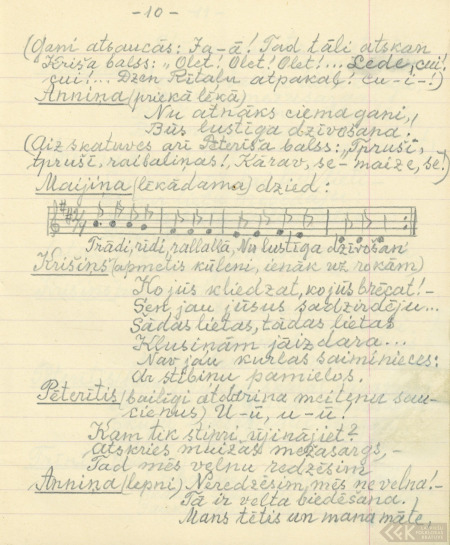 - 10 -
(Gani atsaucās: Ja-ā! Tad tāli atskan
Krīša balss: "Olet! Olet! Olet!... Lede, cui!
cui!... Dzen Rītaļu atpakaļ! cu-i-!)
Anniņa (priekā lēkā)
Nu atnāks ciema gani,
Būs lustīga dzīvošana.
(Aiz skatuves arī Pēterīša balss: "Tprusī,
tprusī, raibaliņas!, Kārav, se-maize, se!)
Maijiņa (lēkādama) dzied:
Trādi, rīdi, rallallā, Nu lustīga dzīvošan
Krišiņš (apmetis kūleni, ienāk uz rokām)
Ko jūs kliedzat, ko jūs brēcat!-
Sen jau jūsus sadzirdēju...
Šādas lietas, tādas lietas
Klusiņām jāizdara...
Nav jau kurlas saiminieces:
Ar stibiņu pamielos.
Pēterītis (bailīgi atdarina
cienus) U-ū, u-ū!
Kam tik stipri ūjinājiet?
Atskries muižas mežasargs,-
Tad mēs velnu redzēsim
Anniņa (lepni) Neredzēsim mēs ne velna!-
Tā ir velta biedēšana.
Mans tētis un mana māte,